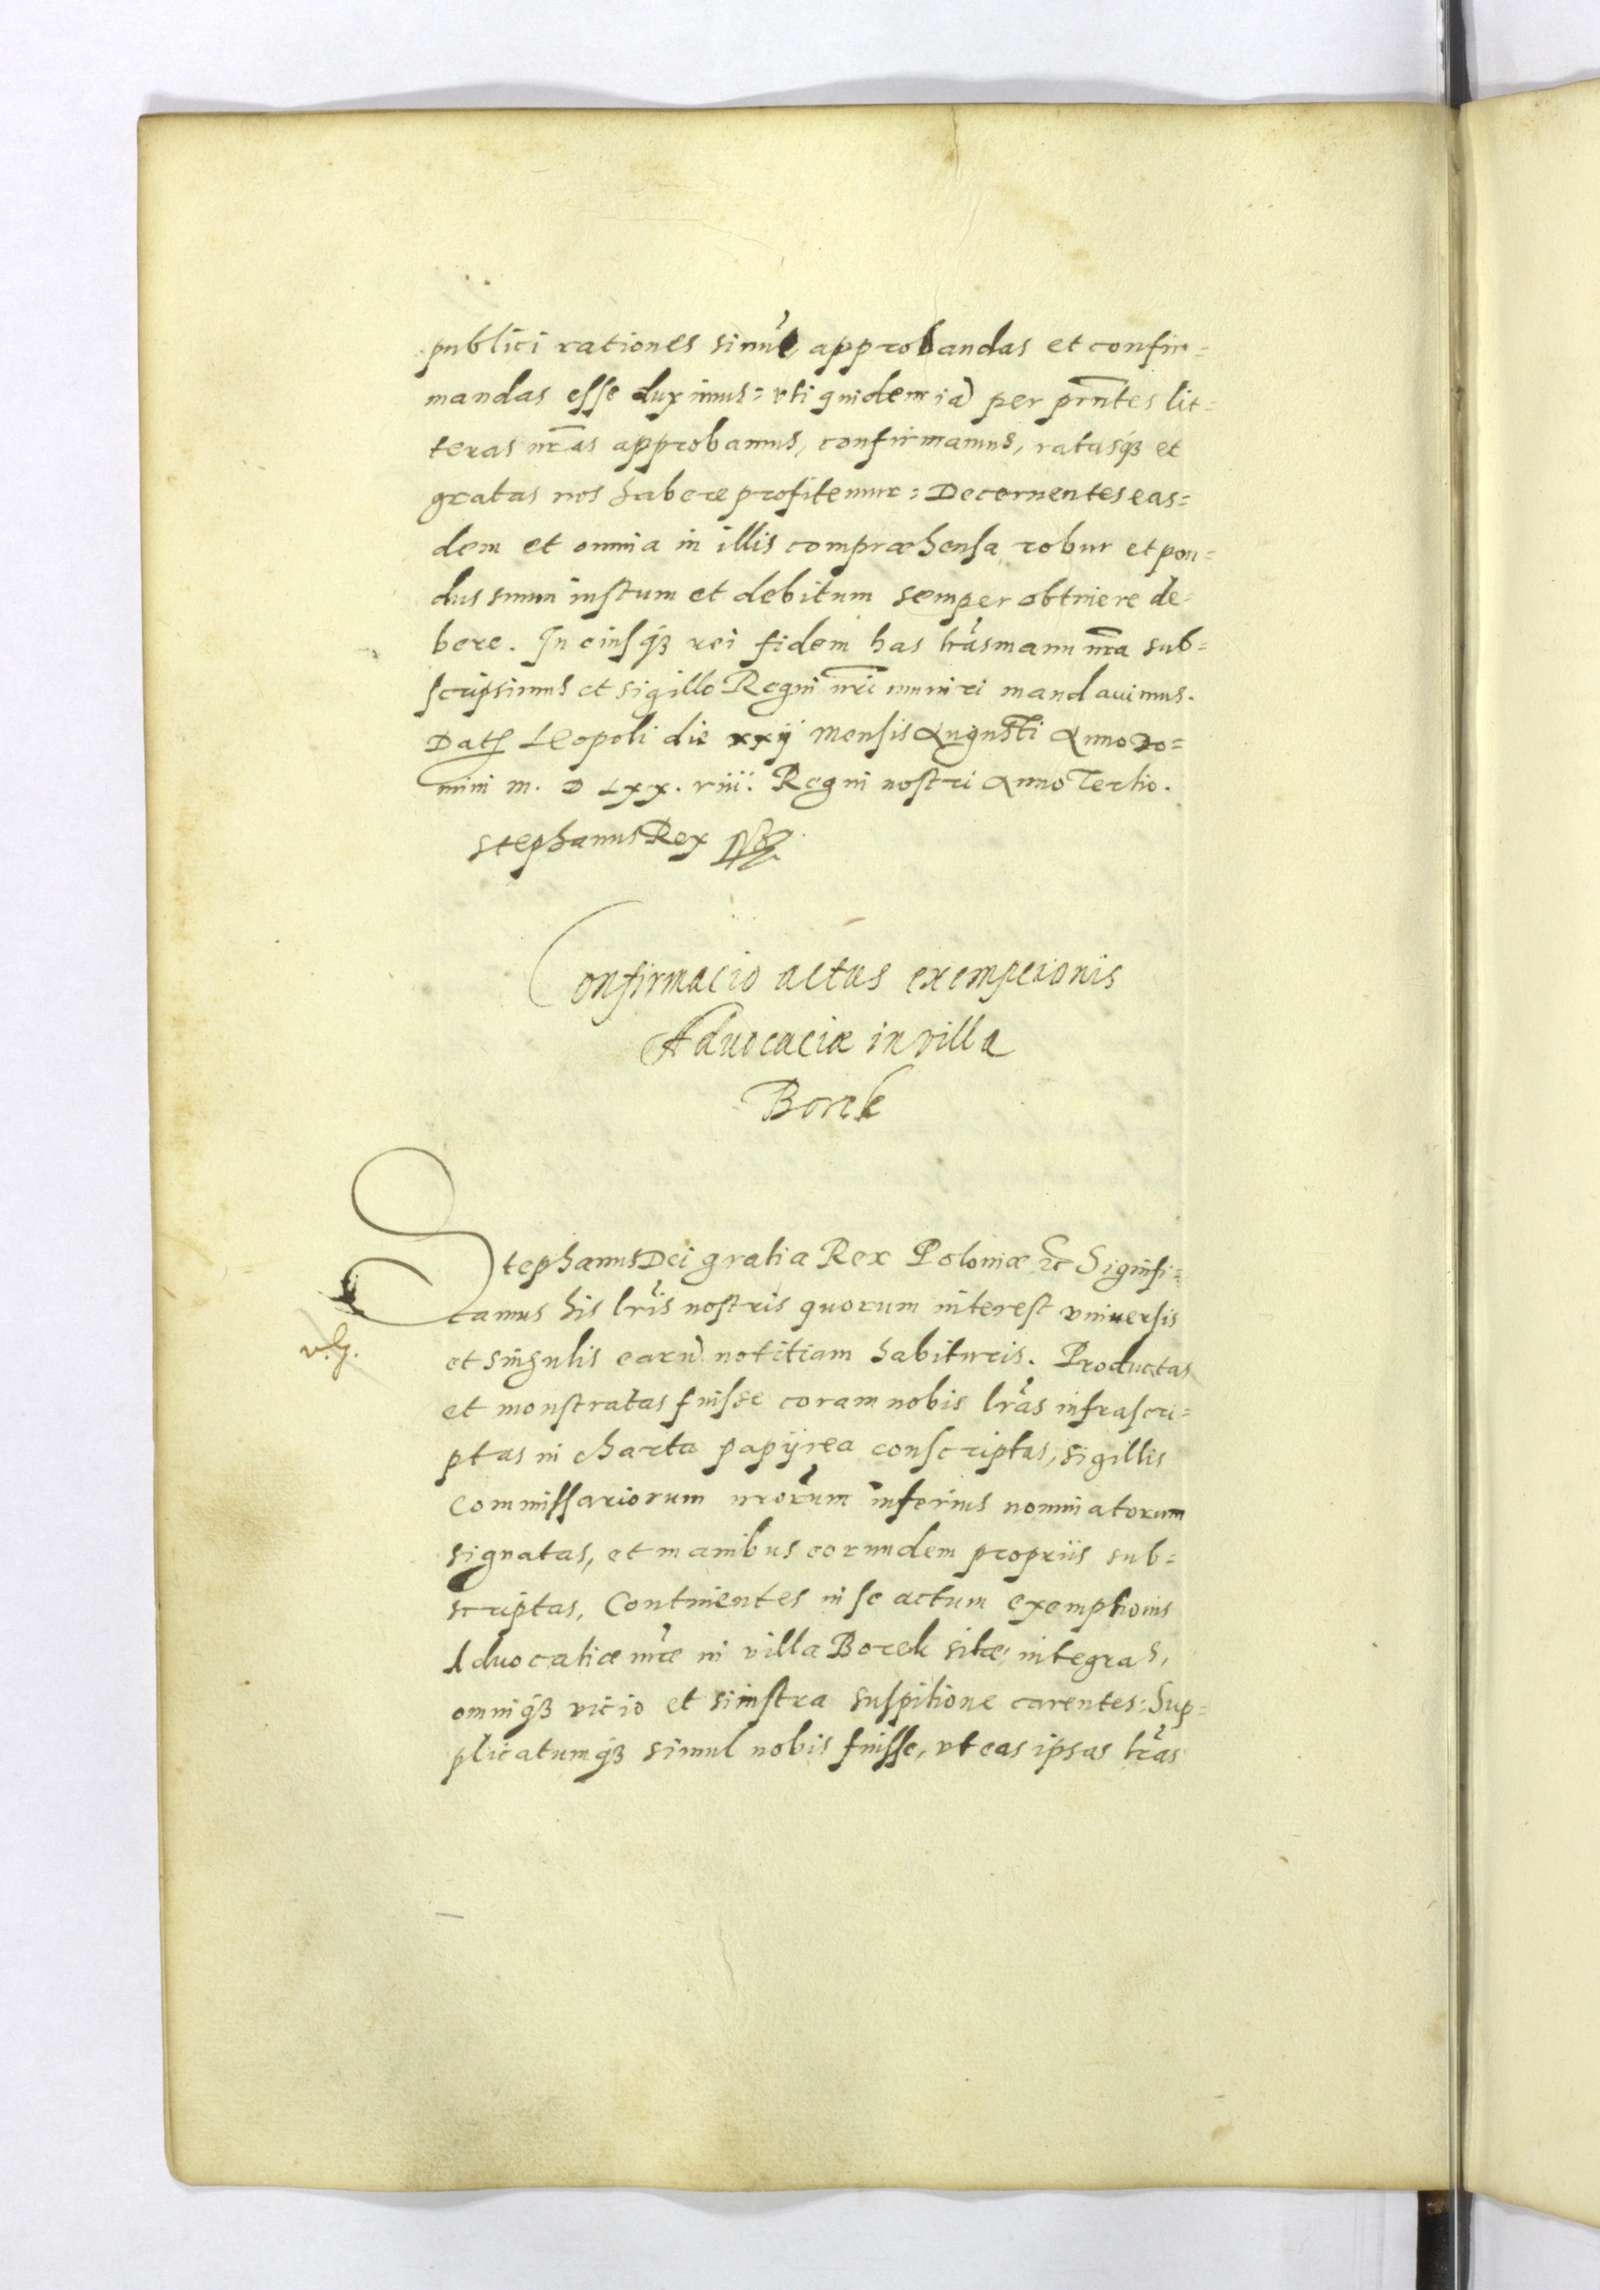 publici rationes sinūt, approbandas et confir=
mandas esse duximus: vti quidem iā per prñtes lit=
teras nr̃as approbamus, confirmamus, ratasq̃ et
gratas nos habere profitemur: Decernentes eas=
dem et omnia in illis compræhensa robur et pon=
dus suum iustum et debitum semper obtinere de=
bere. In eiusq̃ rei fidem has lr̃as manu nr̃a sub=
scripsimus et sigillo Regni nr̃i muniri mandauimus.
Dat Leopoli die xxij mensis Augusti Anno Do=
mini M. D Lxx. viii. Regni nostri Anno Tertio.
Stephanus Rex
Confirmacio actus exempcionis
Aduocaciæ in villa
Borek
Stephanus Dei gratia Rex Poloniæ ꝛc Signifi=
camus his lr̃is nostris quorum interest vniuersis
et singulis earū notitiam habituris. Productas
et monstratas fuisse coram nobis lr̃as infrascri=
ptas in charta papÿrea conscriptas, sigillis
Commissariorum nr̃orum inferius nominatorum
signatas, et manibus eorundem propriis sub=
scriptas, Continentes in se actum exemptionis
Aduocatiæ nr̃æ in villa Borek sitæ, integras,
omniq̃ vicio et sinistra suspitione carentes: Sup=
plicatumq̃ simul nobis fuisse, vt eas ipsas lr̃as